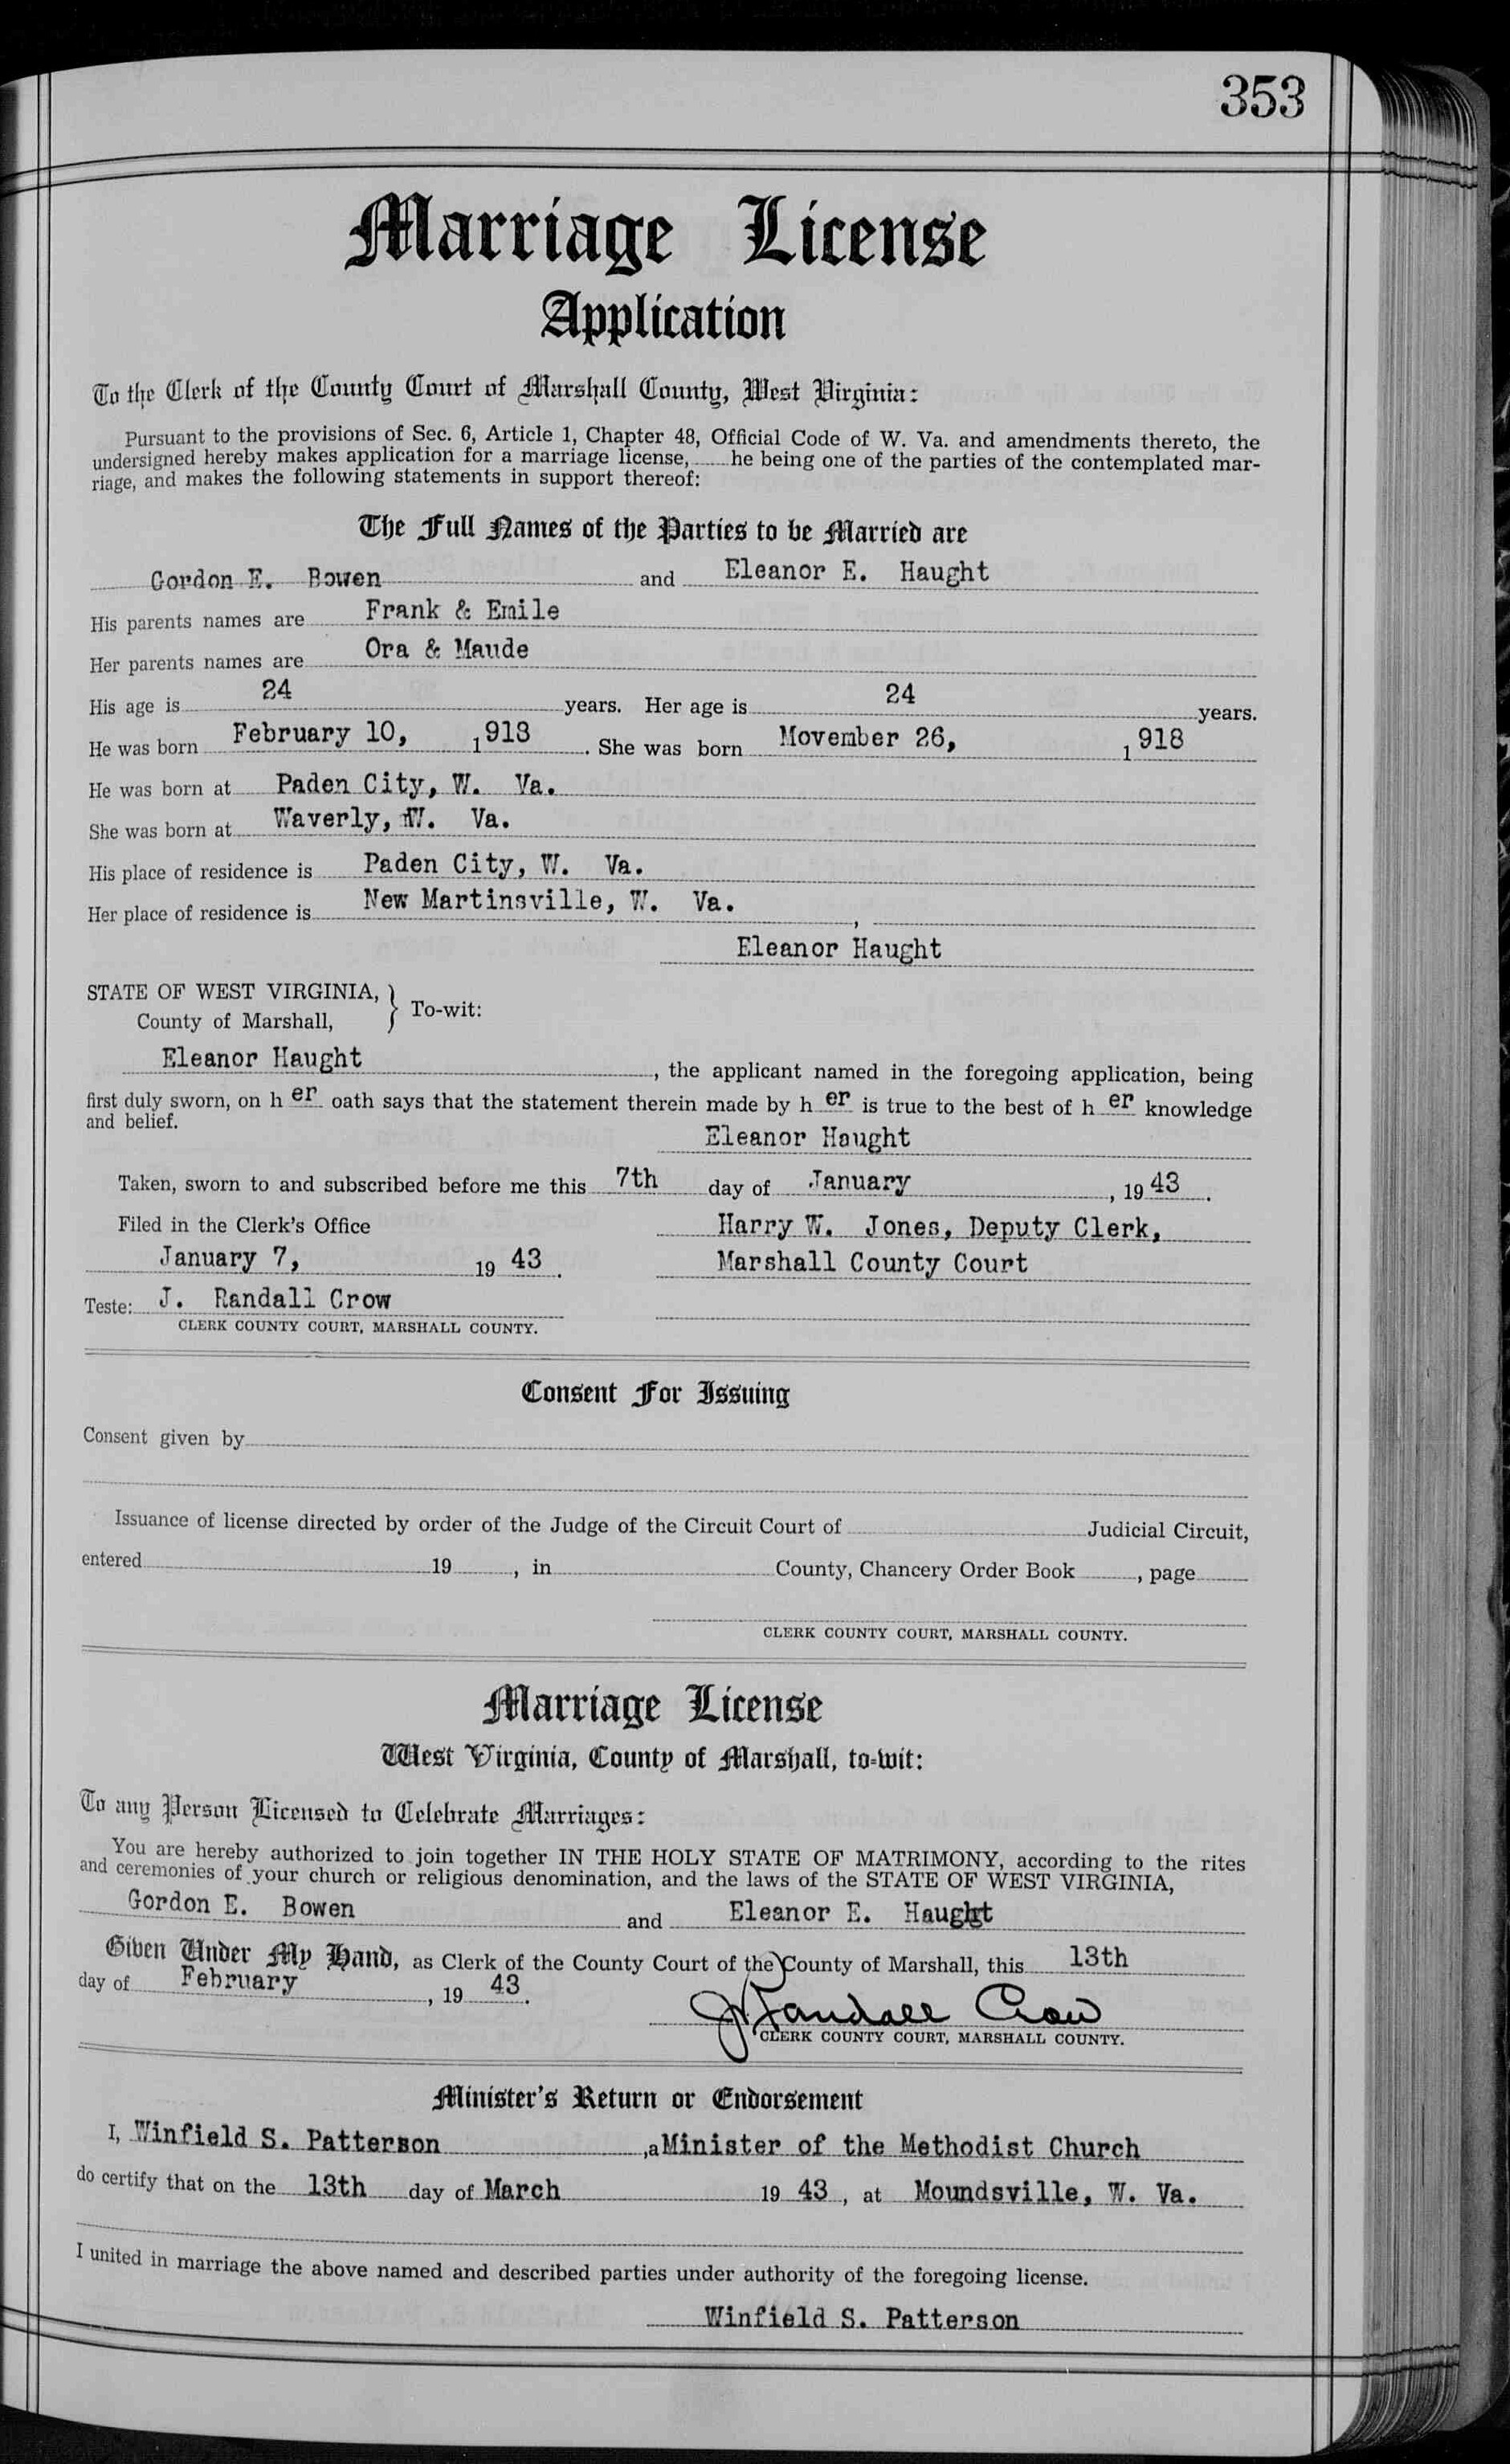 353
Marriage License
Application
To the Clerk of the County Court of Marshall County, West Virginia:
Pursuant to the provisions of Sec. 6, Article 1, Chapter 48, Official Code of W. Va. and amendments thereto, the
undersigned hereby makes application for a marriage license, he being one of the parties of the contemplated mar-
riage, and makes the following statements in support thereof:
The Full Names of the Parties to be Married are
Gordon E. Bowen and Eleanor E. Haught
His parents names are Frank & Emile
Her parents names are Ora & Maude
His age is 24 years. Her age is 24 years.
He was born February 10, 1918. She was born Movember 26, 1918
He was born at Paden City, W. Va.
She was born at Waverly, W. Va.
His place of residence is Paden City, W. Va.
Her place of residence is New Martinsville, W. Va. ,
Eleanor Haught
STATE OF WEST VIRGINIA, } To-wit:
County of Marshall,
Eleanor Haught, the applicant named in the foregoing application, being
first duly sworn, on her oath says that the statement therein made by her is true to the best of her knowledge
and belief.
Eleanor Haught
Taken, sworn to and subscribed before me this 7th day of January, 1943.
Filed in the Clerk's Office Harry W. Jones, Deputy Clerk,
January 7, 1943. Marshall County Court
Teste: J. Randall Crow
CLERK COUNTY COURT, MARSHALL COUNTY.
Consent For Issuing
Consent given by
Issuance of license directed by order of the Judge of the Circuit Court of Judicial Circuit,
entered 19 , in County, Chancery Order Book , page
CLERK COUNTY COURT, MARSHALL COUNTY.
Marriage License
West Virginia, County of Marshall, to-wit:
To any Person Licensed to Celebrate Marriages:
You are hereby authorized to join together IN THE HOLY STATE OF MATRIMONY, according to the rites
and ceremonies of your church or religious denomination, and the laws of the STATE OF WEST VIRGINIA,
Gordon E. Bowen and Eleanor E. Haught
Given Under My Hand, as Clerk of the County Court of the County of Marshall, this 13th
day of February, 1943.
J Randall Crow
CLERK COUNTY COURT, MARSHALL COUNTY.
Minister's Return or Endorsement
I, Winfield S. Patterson, a Minister of the Methodist Church
do certify that on the 13th day of March 1943, at Moundsville, W. Va.
I united in marriage the above named and described parties under authority of the foregoing license.
Winfield S. Patterson